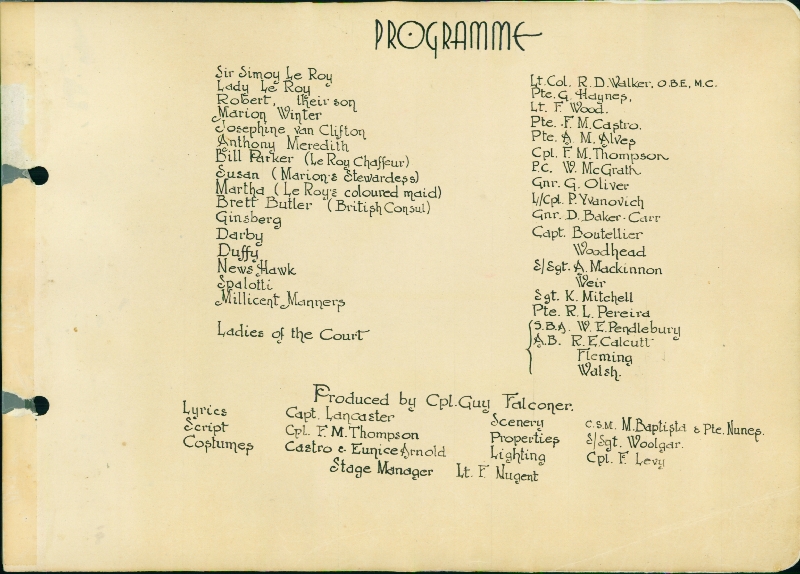 PROGRAMME
Sir Simoy Le Roy
Lady Le Roy
Robert, their son
Marion Winter
Josephine van Clifton
Anthony Meredith
Bill Parker (Le Roy Chaffeur)
Susan (Marion's Stewardess)
Martha (Le Roy's coloured maid)
Brett Butler (British Consul)
Ginsberg
Darby
Duffy
News Hawk
Spalotti
Millicent Manners
Ladies of the Court
Lt. Col. R. D. Walker, O.B.E, M.C.
Pte. G. Haynes,
Lt. F. Wood.
Pte. F. M. Castro.
Pte. A. M. Alves
Cpl. F. M. Thompson
P.C. W. McGrath
Gnr. G. Oliver
L/Cpl. P. Yvanovich
Gnr. D. Baker-Carr
Capt. Boutellier
Woodhead
S/Sgt. A. Mackinnon
Weir
Sgt. K. Mitchell
Pte. R. L. Pereira
S.B.A. W. E. Pendlebury
A.B. R. E. Calcutt
Fleming
Walsh.
Produced by Cpl. Guy Falconer.
Lyrics Capt. Lancaster
Script Cpl. F. M. Thompson
Costumes Castro & Eunice Arnold
Scenery C.S.M. M. Baptista & Pte. Nunes.
Properties S/Sgt. Woolgar.
Lighting Cpl. F. Levy
Stage Manager Lt. F. Nugent